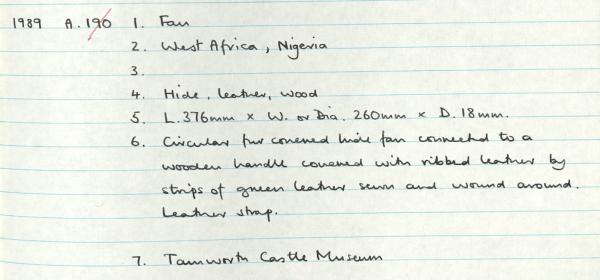 1989 A.190 1. Fan
2. West Africa, Nigeria
3.
4. Hide, leather, wood
5 L.376mm × W. or Dia. 260mm × D. 18mm.
6. Circular fur covered hide fan connected to a
wooden handle covered with ribbed leather by
strips of green leather sewn and wound around.
Leather strap.
7. Tamworth Castle Museum